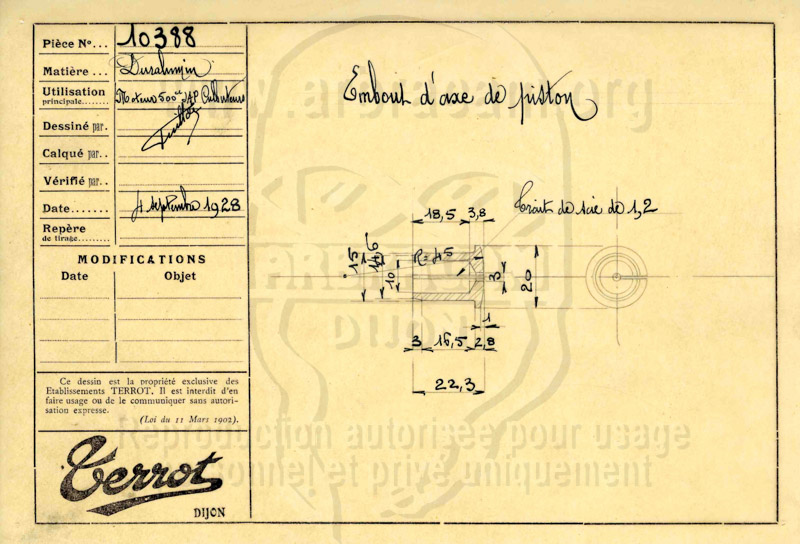 Pièce N°... 10388
Matière ... Duralumin
Utilisation
principale........ Moteur 500cc JAP Culbuteurs
Dessiné par.
Calqué par..
Vérifié par..
Date....... 4 septembre 1928
Repère
de tirage........
MODIFICATIONS
Date Objet
Ce dessin est la propriété exclusive des
Etablissements TERROT. Il est interdit d'en
faire usage ou de le communiquer sans autori-
sation expresse.
(Loi du 11 Mars 1902).
Terrot
DIJON
Embout d'axe de piston
18,5 3,8
Trait de scie de 1,2
15
10
3
20
1
3 16,5 2,8
22,3
www.arbracam.org
ARBRACAM
DIJON
Reproduction autorisée pour usage
personnel et privé uniquement